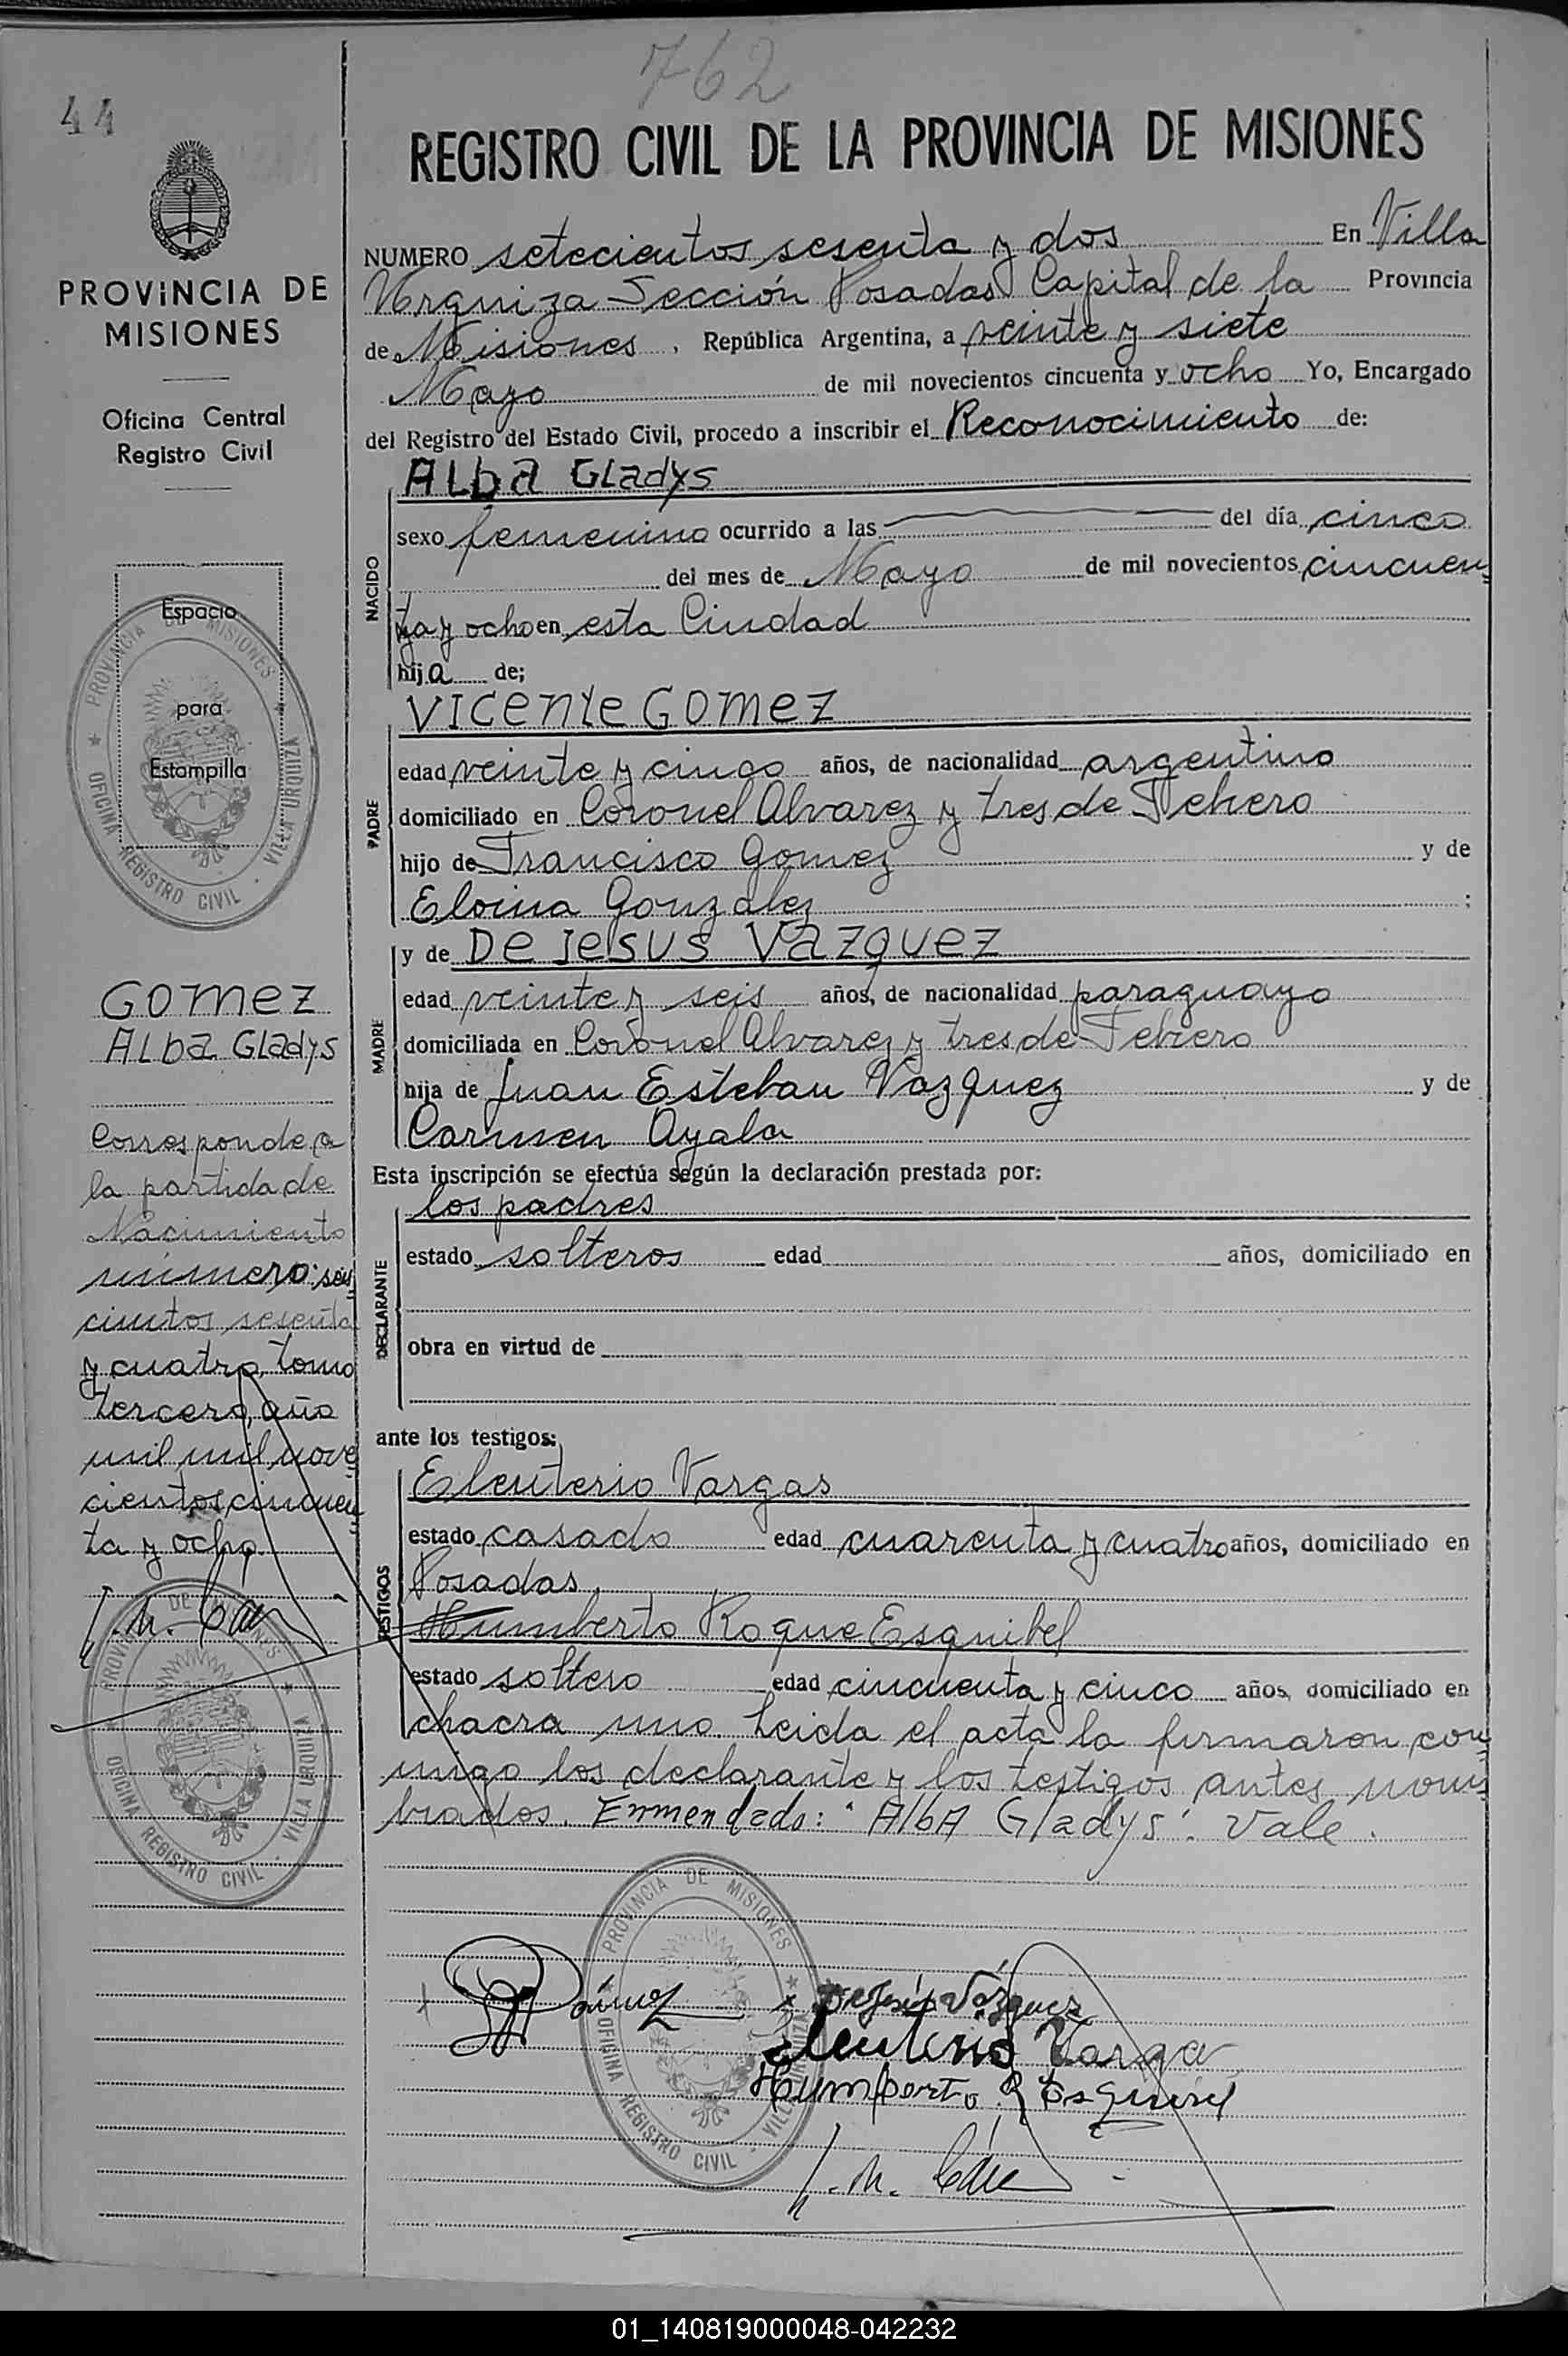 762
44
REGISTRO CIVIL DE LA PROVINCIA DE MISIONES
PROVINCIA DE
MISIONES
Oficina Central
Registro Civil
Espacio
para
Estampilla
PROVINCIA DE MISIONES
OFICINA REGISTRO CIVIL · VILLA URQUIZA
GOMEZ
ALba GLadys
Corresponde a
la partida de
Nacimiento
número: seis
cientos sesenta
y cuatro, tomo
tercero, año
mil mil nove
cientos cincuen
ta y ocho.
PROVINCIA DE MISIONES
OFICINA REGISTRO CIVIL · VILLA URQUIZA
NUMERO setecientos sesenta y dos En Villa
Urquiza Sección Posadas Capital de la Provincia
de Misiones, República Argentina, a veinte y siete
Mayo de mil novecientos cincuenta y ocho Yo, Encargado
del Registro del Estado Civil, procedo a inscribir el Reconocimiento de:
NACIDO
ALba GLadys
sexo femenino ocurrido a las del día cinco
del mes de Mayo de mil novecientos cincuen
ta y ocho en esta Ciudad
hija de;
PADRE
VICENTE GOMEZ
edad veinte y cinco años, de nacionalidad argentino
domiciliado en Coronel Alvarez y tres de Febrero
hijo de Francisco Gomez y de
Eloina Gonzalez ;
MADRE
y de De Jesus Vazquez
edad veinte y seis años, de nacionalidad paraguayo
domiciliada en Coronel Alvarez y tres de Febrero
hija de Juan Esteban Vazquez y de
Carmen Ayala
Esta inscripción se efectúa según la declaración prestada por:
DECLARANTE
los padres
estado solteros edad años, domiciliado en
obra en virtud de
ante los testigos:
TESTIGOS
Eleuterio Vargas
estado casado edad cuarenta y cuatro años, domiciliado en
Posadas,
Humberto Roque Esquibel
estado soltero edad cincuenta y cinco años, domiciliado en
chacra uno. Leida el acta la firmaron con
migo los declarante y los testigos antes nom
brados. Enmendado: "AlbA Gladys". Vale.
PROVINCIA DE MISIONES
OFICINA REGISTRO CIVIL · VILLA URQUIZA
De Jesús Vázquez
Eleuterio Varga
Humberto R Esquivel
01_140819000048-042232